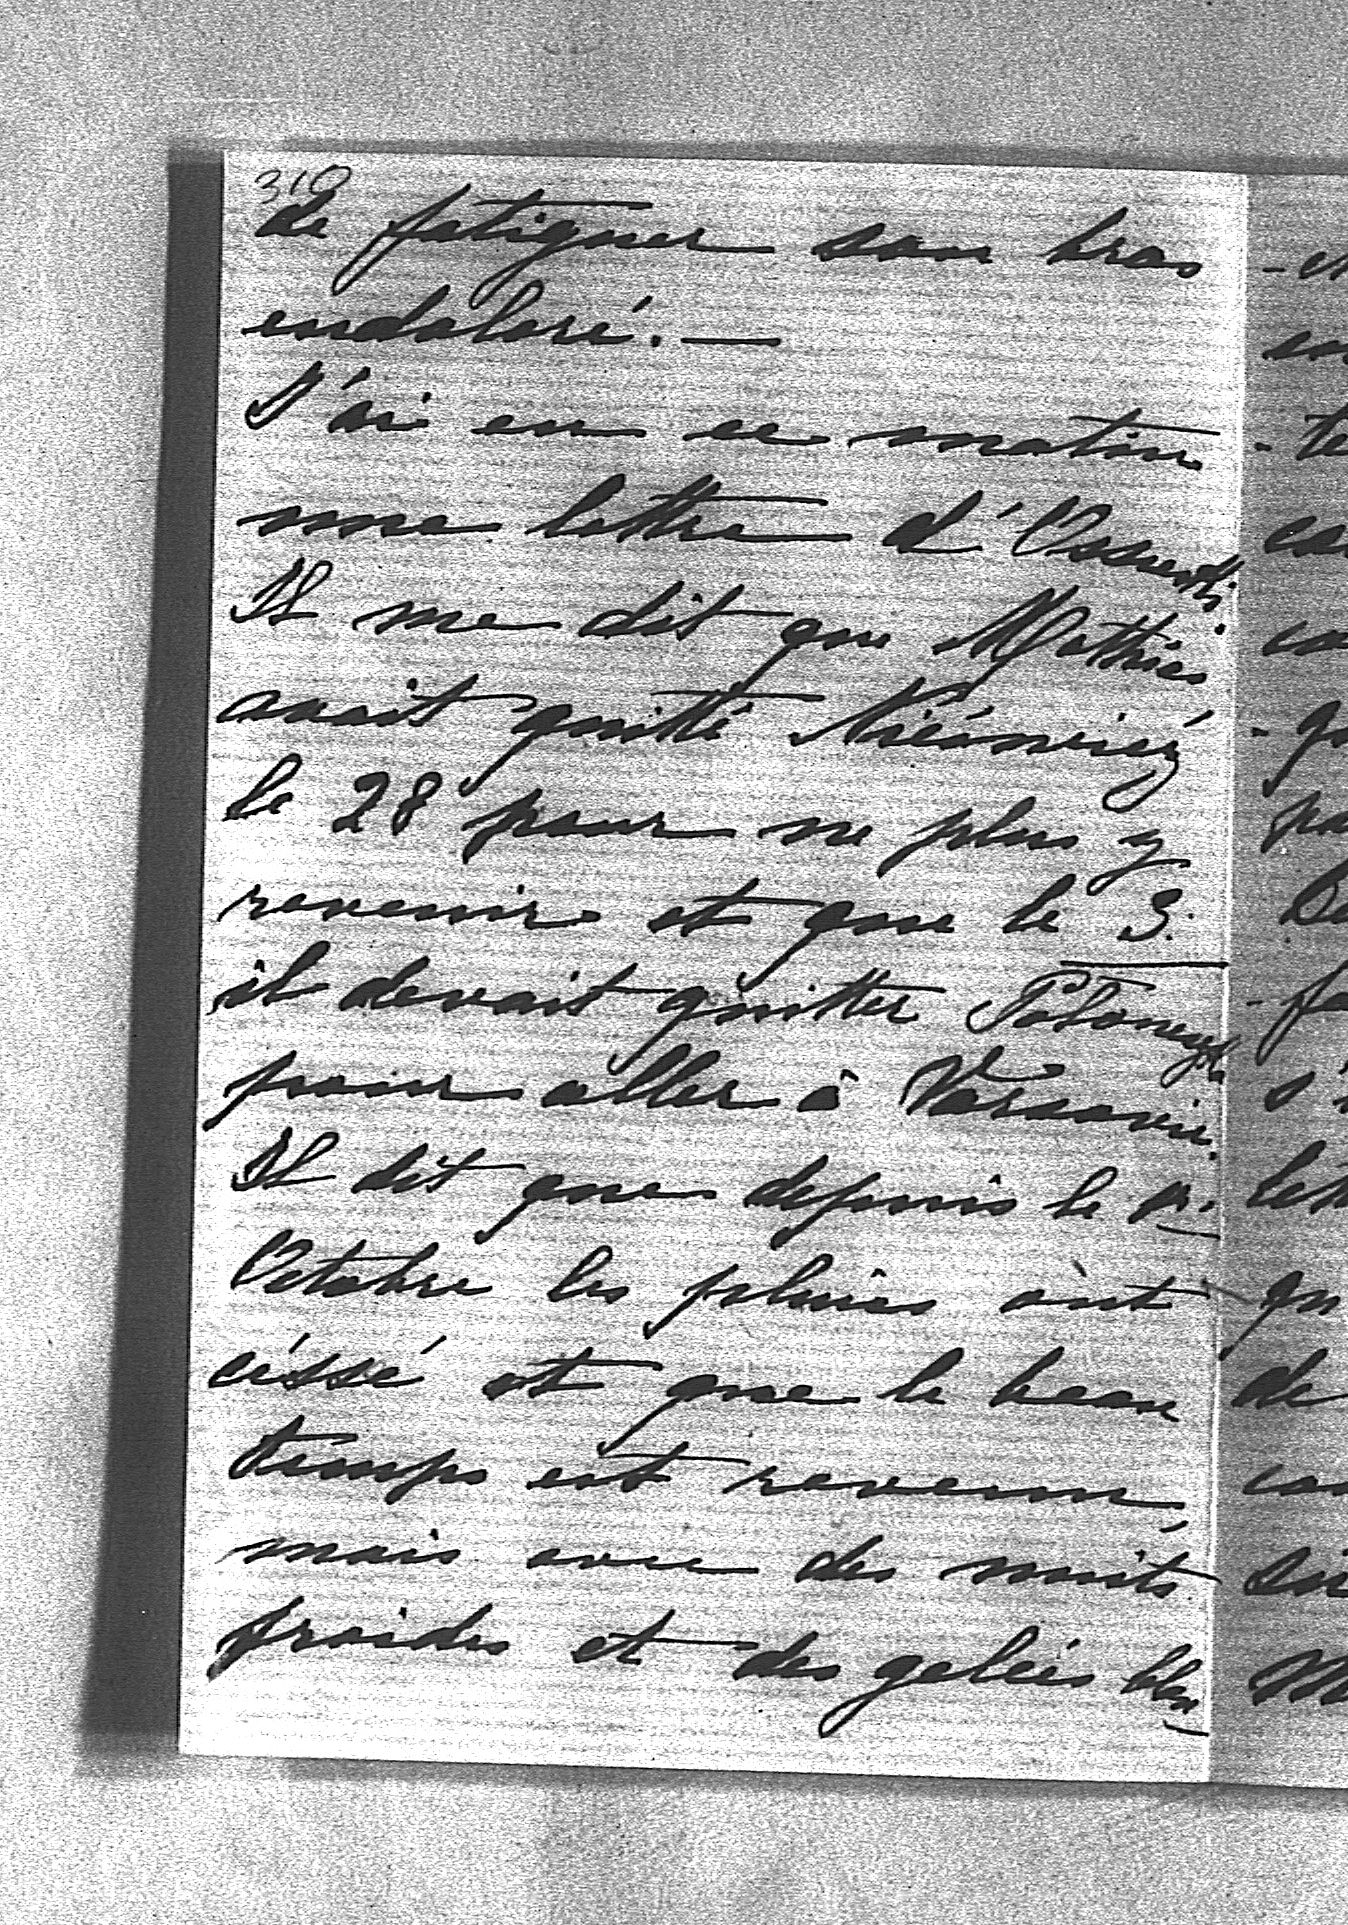 310
de fatiguer son bras
endoloré. —
J'ai eu ce matin
une lettre d'
Il me dit que Mathias
avait quitté
le 28 pour ne plus y
revenir et que le 3.
il devait quitter
pour aller à Varsovie.
Il dit que depuis le
Octobre les pluies ont
céssé et que le beau
temps est revenu,
mais avec des nuits
froides et des gelées blan